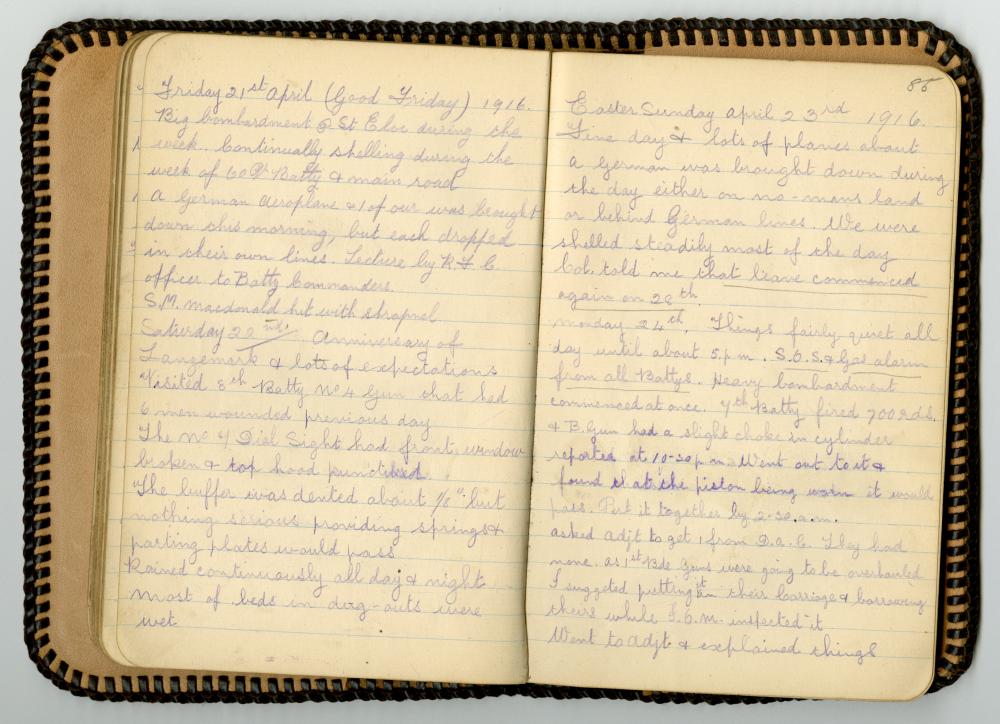 Friday 21st April (Good Friday) 1916.
Big bombardment @ St Eloc during the
week. Continually shelling during the
week of 60 Pr Batty & main road
A German aeroplane & 1 of our was brought
down this morning, but each dropped
in their own lines. Lecture by R.F.C.
officer to Batty Commanders.
S.M. Macdonald hit with shrapnel
Saturday 22nd. Anniversary of
Langemark & lots of expectations
Visited 8th Batty No 4 Gun that had
6 men wounded previous day
The No 7 Dial Sight had front window
broken & top hood punctured.
The buffer was dented about 1/8" but
nothing serious providing springs &
parting plates would pass
Rained continuously all day & night
Most of beds in dug-outs were
wet
86
Easter Sunday April 23rd 1916.
Fine day & lots of planes about
a German was brought down during
the day either on no-mans land
or behind German lines. We were
shelled steadily most of the day
Col. told me that leave commenced
again on 28th.
Monday 24th. Things fairly quiet all
day until about 5 p.m. S.O.S. & Gas alarm
from all Battys. Heavy bombardment
commenced at once. 7th Batty fired 700 rds.
& B. Gun had a slight choke in cylinder
reported at 10-30 p.m. Went out to it &
found that the piston being worn it would
pass. Put it together by 2-30 a.m.
asked adjt to get 1 from D.A.C. They had
none. as 1st Bde Guns were going to be overhauled
I suggested putting it in their Carriage & borrowing
theirs while I.O.M. inspected it
Went to adjt & explained things